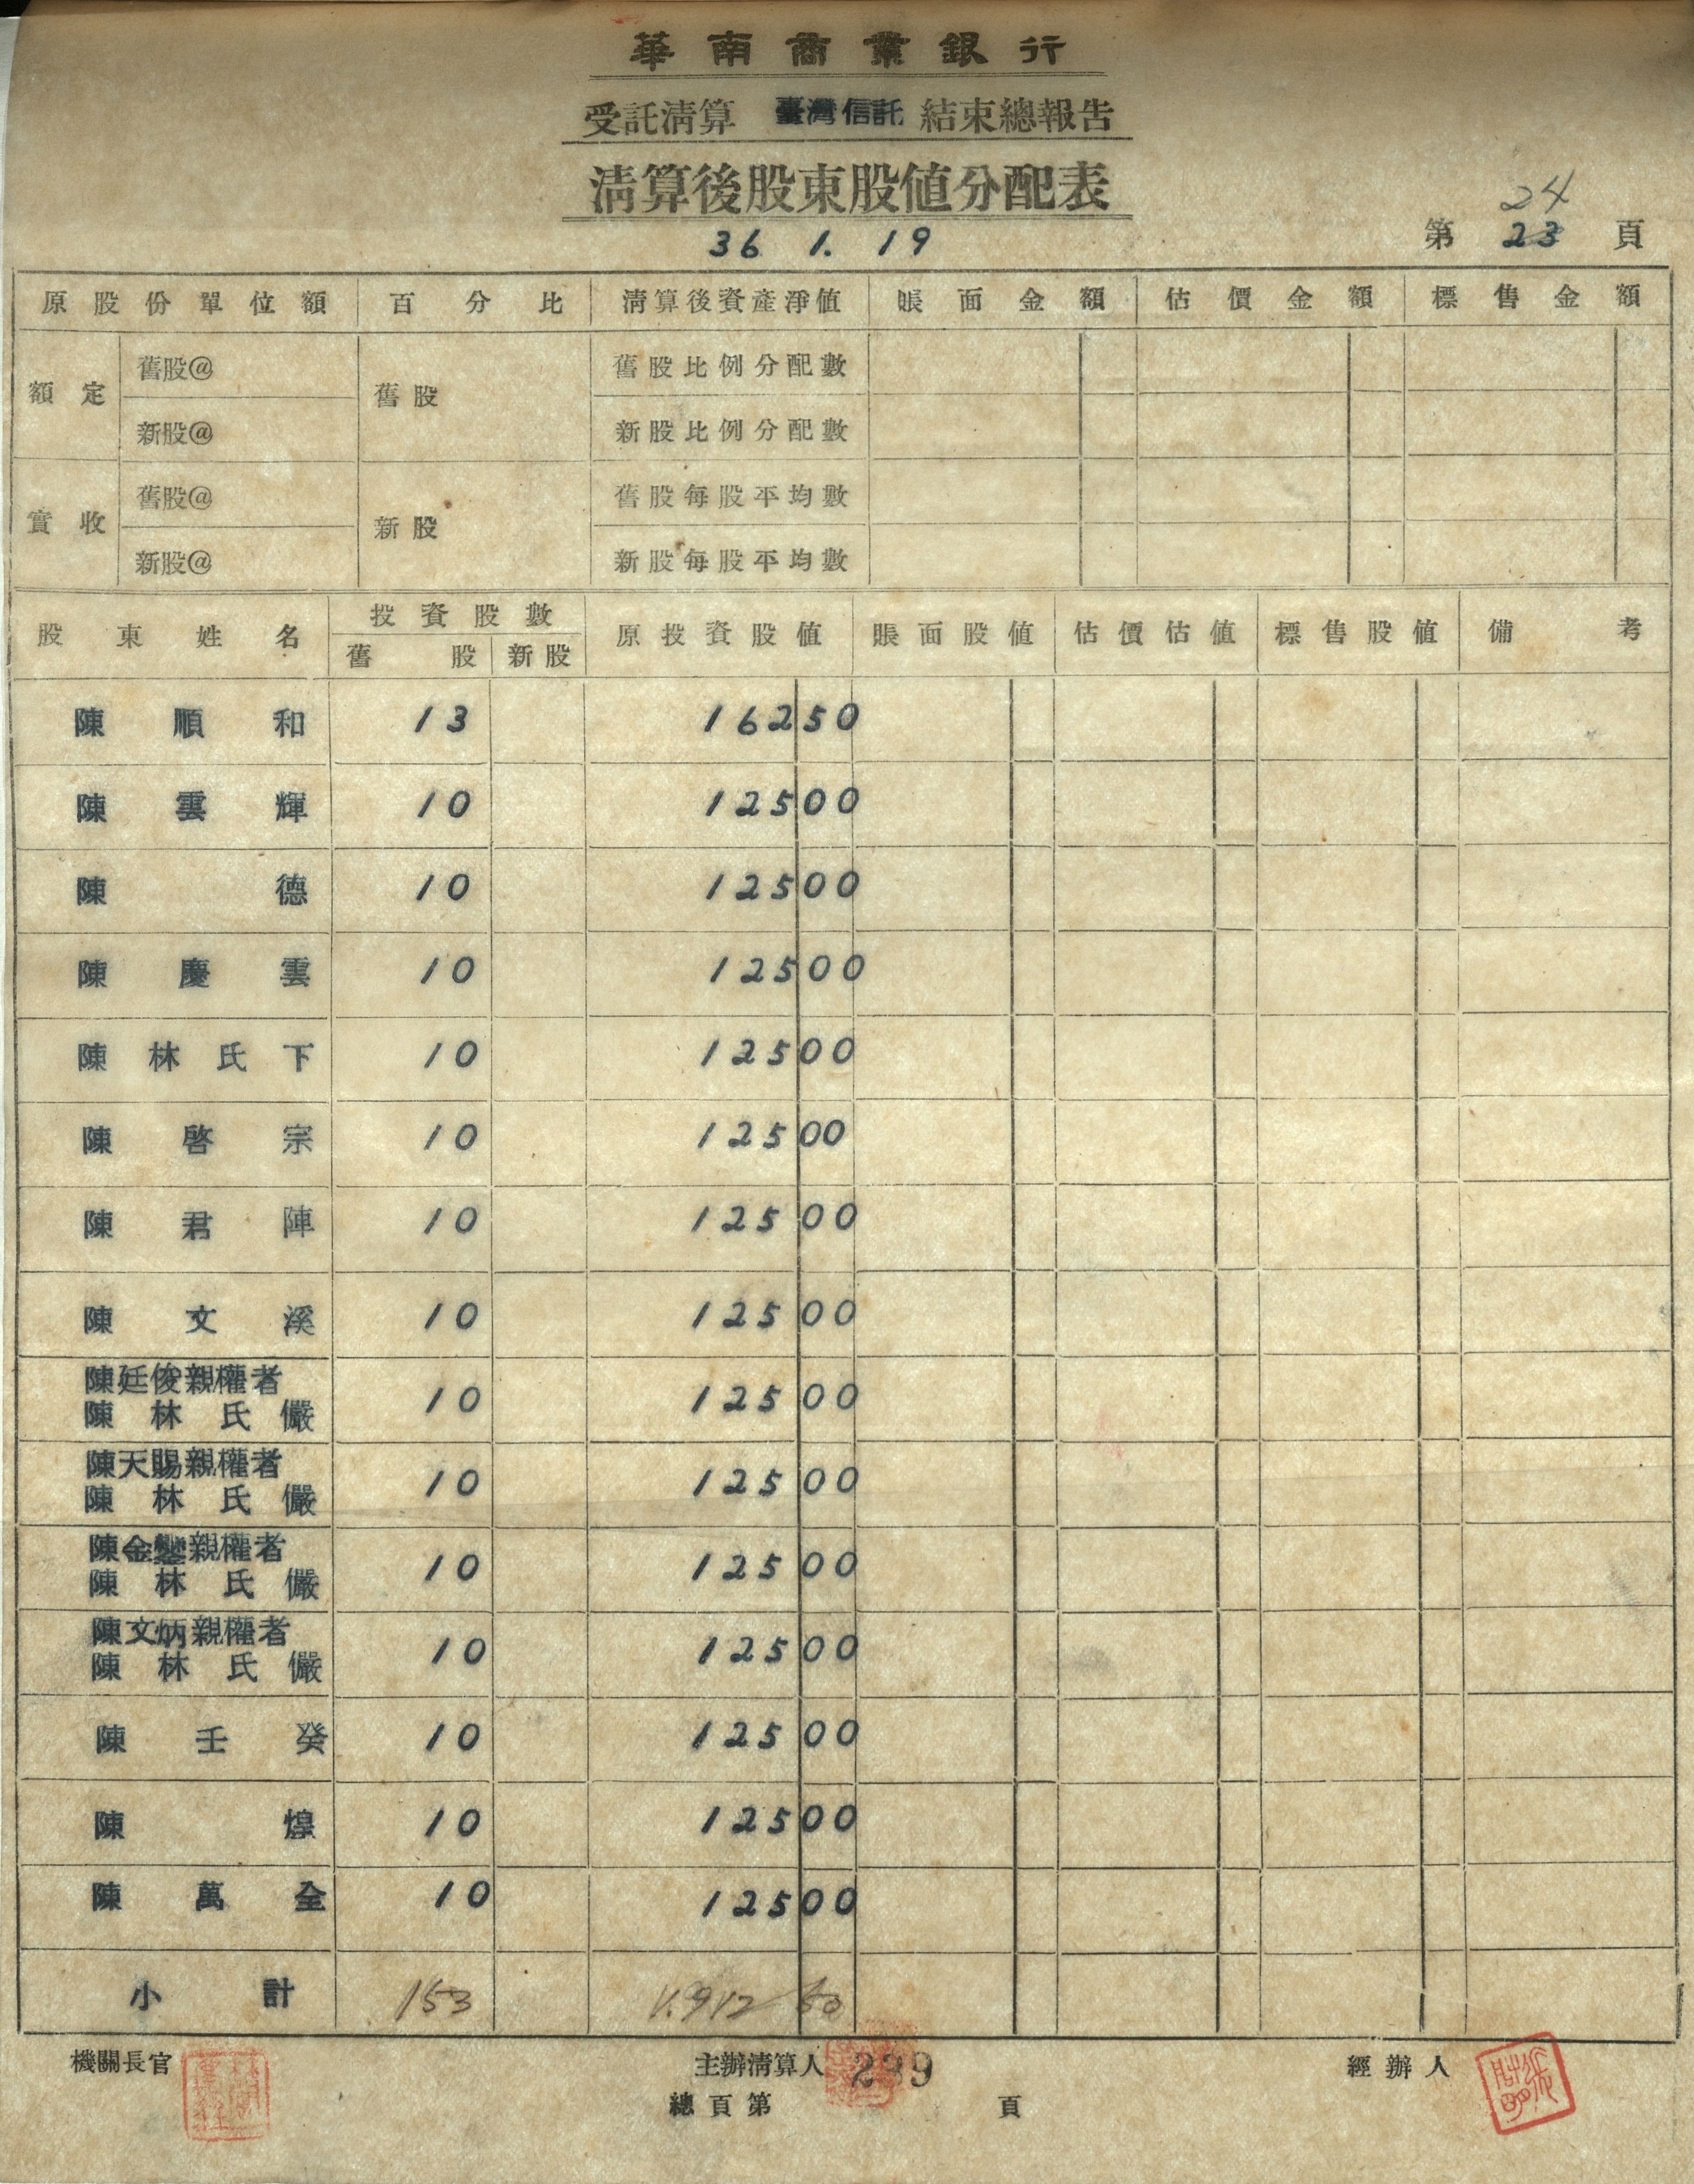 華南商業銀行
受託清算 臺灣信託 結束總報告
清算後股東股値分配表
36. 1. 19
24
第 23 頁
原股份單位額 百分比 清算後資產淨值 賬面金額 估價金額 標售金額
額定 舊股@ 舊股 舊股比例分配數
新股@ 新股比例分配數
實收 舊股@ 新股 舊股每股平均數
新股@ 新股每股平均數
股東姓名 投資股數 原投資股値 賬面股値 估價估値 標售股値 備考
舊股 新股
陳順和 13 162 50
陳雲輝 10 125 00
陳德 10 125 00
陳慶雲 10 125 00
陳林氏下 10 125 00
陳啓宗 10 125 00
陳君陣 10 125 00
陳文溪 10 125 00
陳廷俊親權者
陳林氏儼 10 125 00
陳天賜親權者
陳林氏儼 10 125 00
陳金鑾親權者
陳林氏儼 10 125 00
陳文炳親權者
陳林氏儼 10 125 00
陳壬癸 10 125 00
陳煌 10 125 00
陳萬全 10 125 00
小計 153 1.912 50
機關長官 主辦清算人 經辦人
299
總頁第 頁